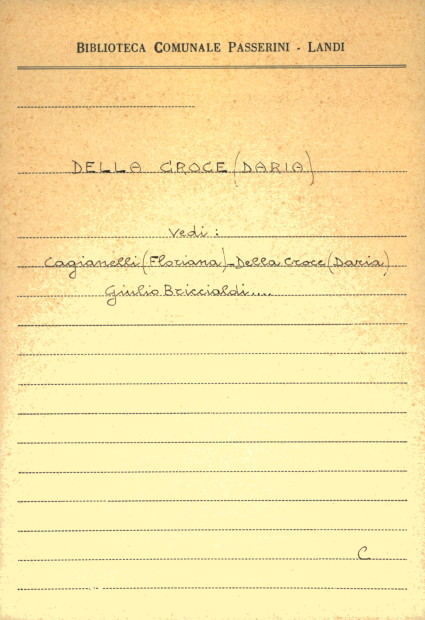 BIBLIOTECA COMUNALE PASSERINI - LANDI
DELLA CROCE (DARIA)
Vedi :
Cagianelli (Floriana) - Della Croce (Daria)
Giulio Briccialdi....
C